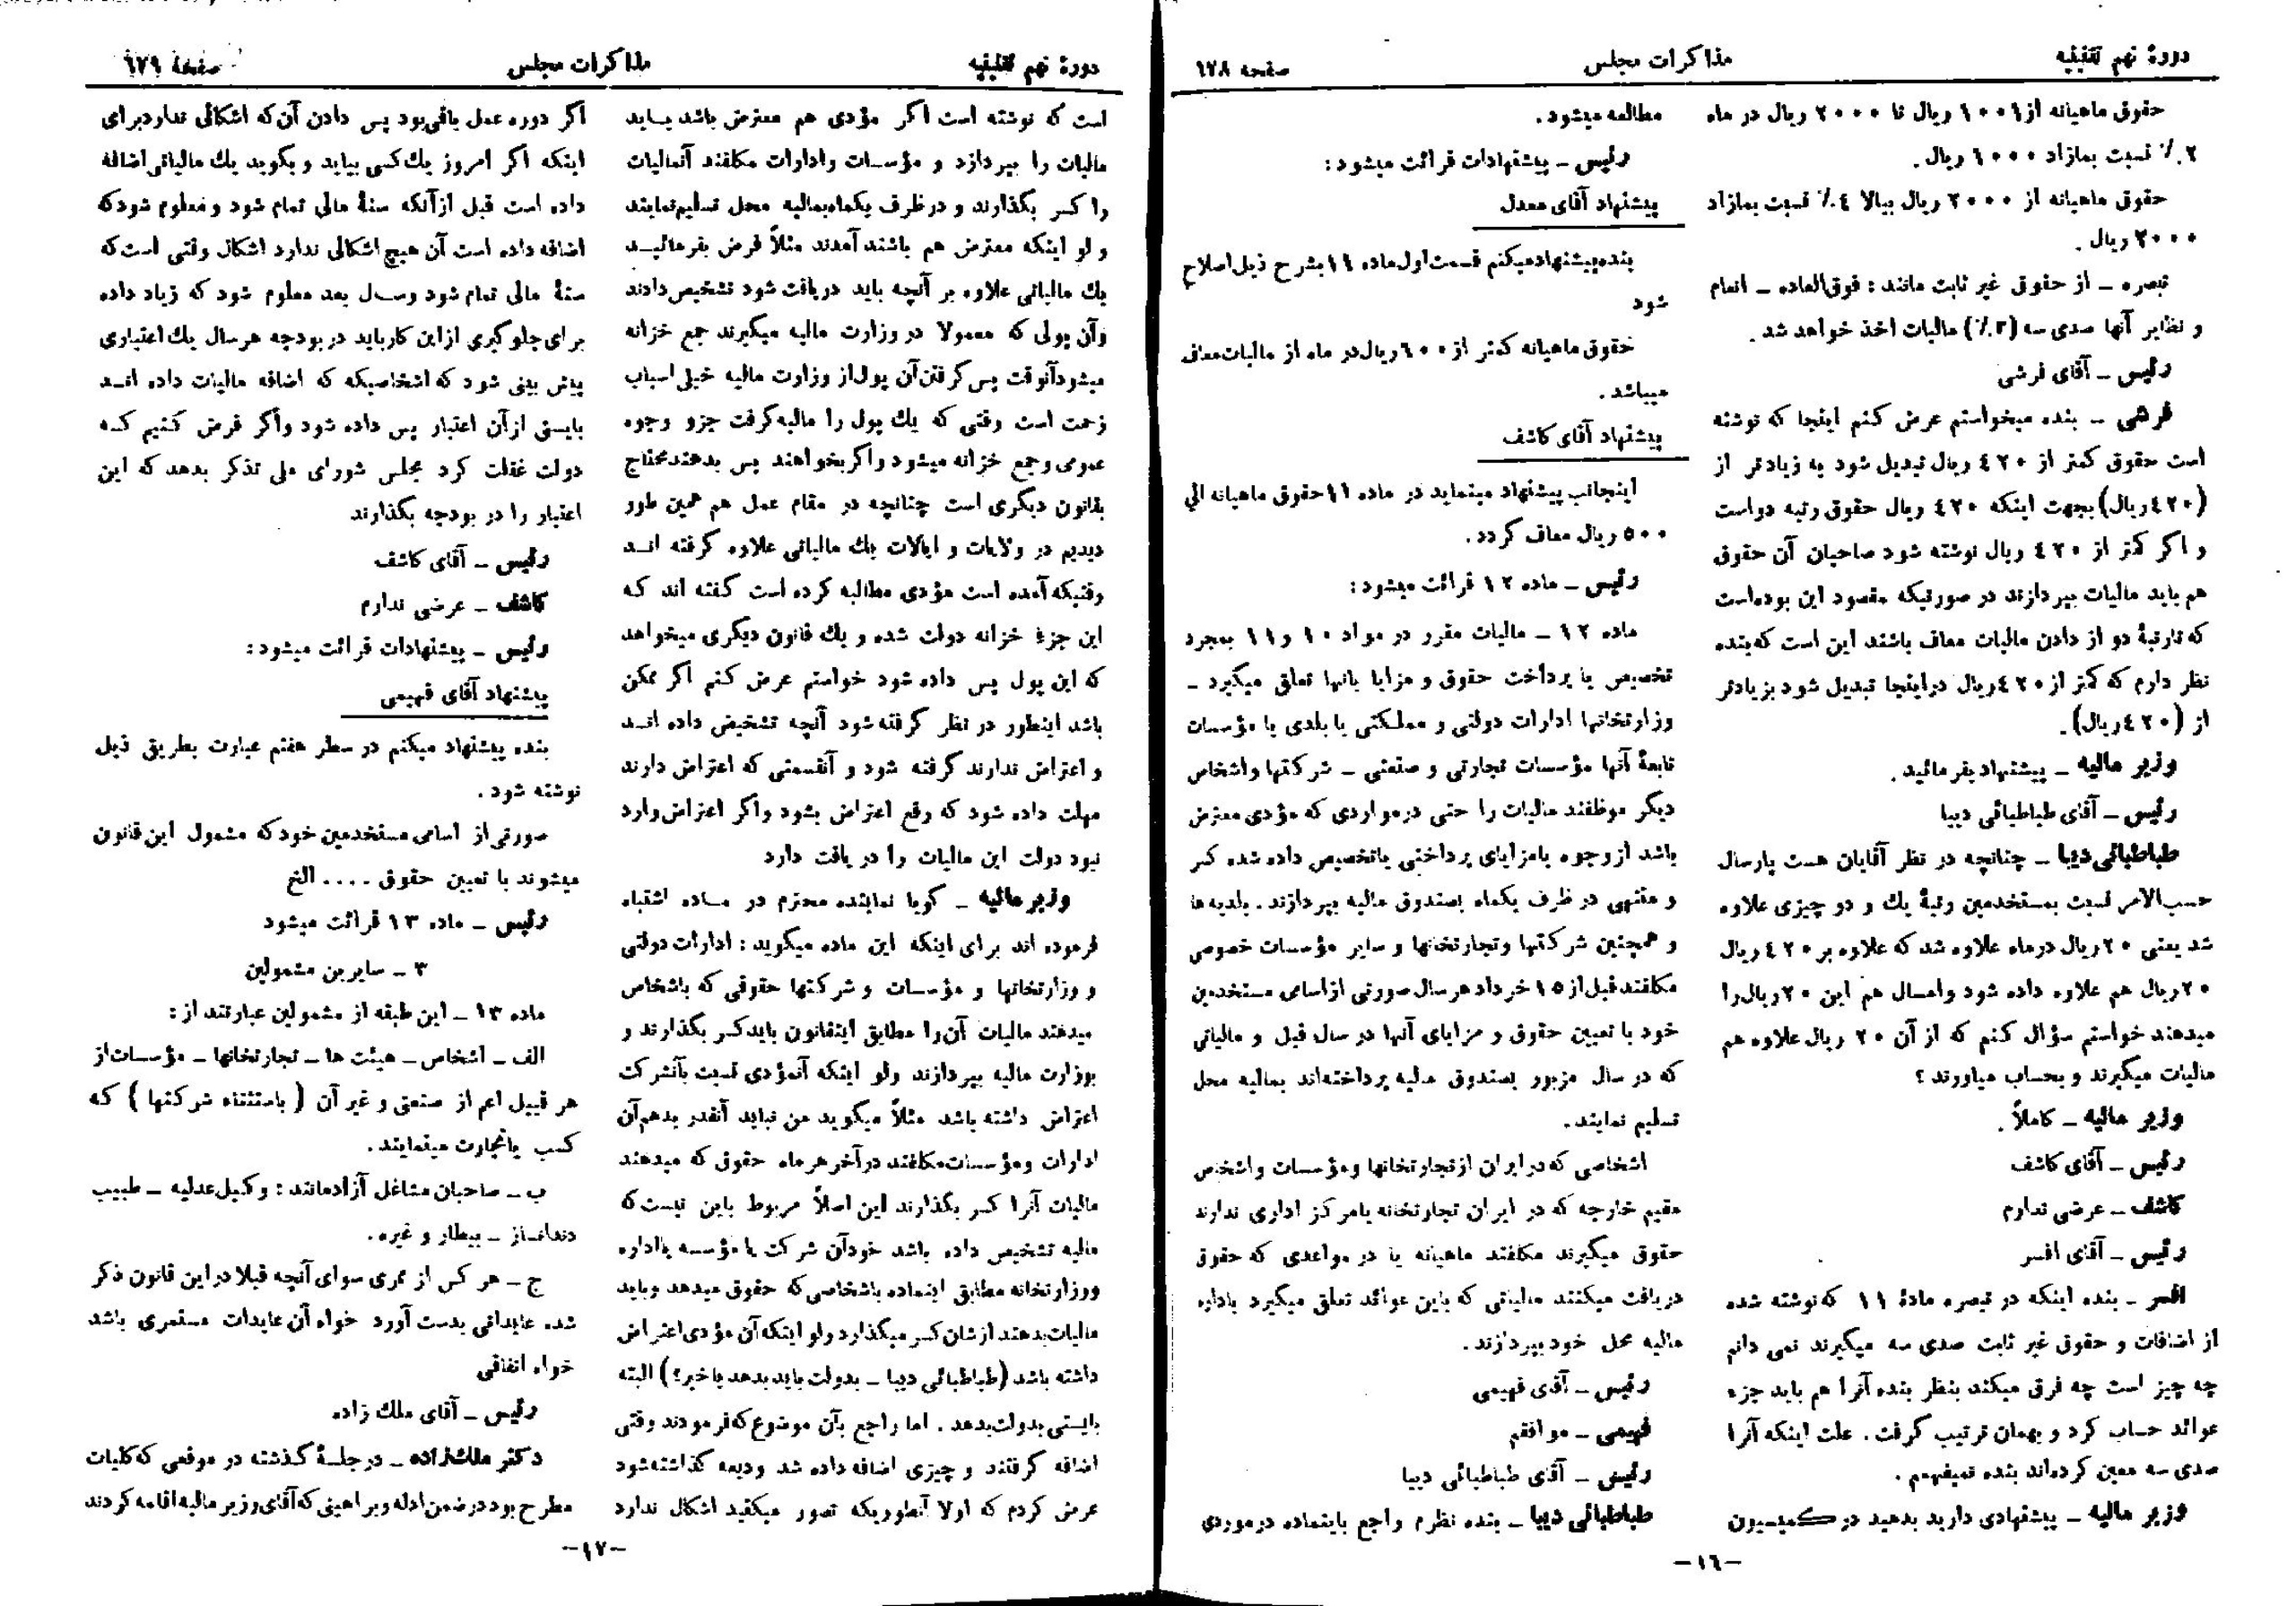 دورهٔ نهم تقنینیه
مذاکرات مجلس
صفحه ٦٧٨
حقوق ماهیانه از ١٠٠١ ریال تا ٢٠٠٠ ریال در ماه
٢٪ نسبت بمازاد ١٠٠٠ ریال.
حقوق ماهیانه از ٢٠٠٠ ریال ببالا ٤٪ نسبت بمازاد
٢٠٠٠ ریال.
تبصره ـ از حقوق غیر ثابت مانند: فوق‌العاده ـ انعام
و نظایر آنها صدی سه (٣٪) مالیات اخذ خواهد شد.
رئیس ـ آقای فرشی
فرشی ـ بنده میخواستم عرض کنم اینجا که نوشته
است حقوق کمتر از ٤٢٠ ریال تبدیل شود به زیادتر از
(٤٢٠ ریال) بجهت اینکه ٤٢٠ ریال حقوق رتبه دو است
و اگر کمتر از ٤٢٠ ریال نوشته شود صاحبان آن حقوق
هم باید مالیات بپردازند در صورتیکه مقصود این بوده‌است
که تا رتبهٔ دو از دادن مالیات معاف باشند این است که بنده
نظر دارم که کمتر از ٤٢٠ ریال در اینجا تبدیل شود بزیادتر
از (٤٢٠ ریال).
وزیر مالیه ـ پیشنهاد بفرمائید.
رئیس ـ آقای طباطبائی دیبا
طباطبائی دیبا ـ چنانچه در نظر آقایان هست پارسال
حسب‌الامر نسبت بمستخدمین رتبهٔ یك و دو چیزی علاوه
شد یعنی ٢٠ ریال در ماه علاوه شد که علاوه بر ٤٢٠ ریال
٢٠ ریال هم علاوه داده شود و امسال هم این ٢٠ ریال را
میدهند خواستم سؤال کنم که از آن ٢٠ ریال علاوه هم
مالیات میگیرند و بحساب میاورند؟
وزیر مالیه ـ کاملاً.
رئیس ـ آقای کاشف
کاشف ـ عرضی ندارم
رئیس ـ آقای افسر
افسر ـ بنده اینکه در تبصره مادهٔ ١١ که نوشته شده
از اضافات و حقوق غیر ثابت صدی سه میگیرند نمی دانم
چه چیز است چه فرق میکند بنظر بنده آنرا هم باید جزء
عوائد حساب کرد و بهمان ترتیب گرفت. علت اینکه آنرا
صدی سه معین کرده‌اند بنده نمیفهمم.
وزیر مالیه ـ پیشنهادی دارید بدهید در کمیسیون
مطالعه میشود.
رئیس ـ پیشنهادات قرائت میشود:
پیشنهاد آقای معدل
بنده پیشنهاد میکنم قسمت اول ماده ١١ بشرح ذیل اصلاح
شود
حقوق ماهیانه کمتر از ٦٠٠ ریال در ماه از مالیات معاف
میباشد.
پیشنهاد آقای کاشف
اینجانب پیشنهاد مینماید در ماده ١١ حقوق ماهیانه الی
٥٠٠ ریال معاف گردد.
رئیس ـ ماده ١٢ قرائت میشود:
ماده ١٢ ـ مالیات مقرر در مواد ١٠ و ١١ بمجرد
تخصیص یا پرداخت حقوق و مزایا بانها تعلق میگیرد ـ
وزارتخانها ادارات دولتی و مملکتی یا بلدی یا مؤسسات
تابعهٔ آنها مؤسسات تجارتی و صنعتی ـ شرکتها و اشخاص
دیگر موظفند مالیات را حتی در مواردی که مؤدی معترض
باشد از وجوه یا مزایای پرداختی یا تخصیص داده شده کسر
و منتهی در ظرف یکماه بصندوق مالیه بپردازند. بلدیه ها
و همچنین شرکتها و تجارتخانها و سایر مؤسسات خصوصی
مکلفند قبل از ١٥ خرداد هر سال صورتی از اسامی مستخدمین
خود با تعیین حقوق و مزایای آنها در سال قبل و مالیاتی
که در سال مزبور بصندوق مالیه پرداخته‌اند بمالیه محل
تسلیم نمایند.
اشخاصی که در ایران از تجارتخانها و مؤسسات و اشخاص
مقیم خارجه که در ایران تجارتخانه یا مرکز اداری ندارند
حقوق میگیرند مکلفند ماهیانه یا در مواعدی که حقوق
دریافت میکنند مالیاتی که باین عوائد تعلق میگیرد باداره
مالیه محل خود بپردازند.
رئیس ـ آقای فهیمی
فهیمی ـ موافقم
رئیس ـ آقای طباطبائی دیبا
طباطبائی دیبا ـ بنده نظرم راجع باینماده در موردی
ـ١٦ـ
دورهٔ نهم تقنینیه
مذاکرات مجلس
صفحهٔ ٦٧٩
است که نوشته است اگر مؤدی هم معترض باشد باید
مالیات را بپردازد و مؤسسات و ادارات مکلفند آنمالیات
را کسر بگذارند و در ظرف یکماه بمالیه محل تسلیم نمایند
و لو اینکه معترض هم باشند آمدند مثلاً فرض بفرمائید
یك مالیاتی علاوه بر آنچه باید دریافت شود تشخیص دادند
و آن پولی که معمولا در وزارت مالیه میگیرند جمع خزانه
میشود آنوقت پس گرفتن آن پول از وزارت مالیه خیلی اسباب
زحمت است وقتی که یك پول را مالیه گرفت جزو وجوه
عمومی و جمع خزانه میشود و اگر بخواهند پس بدهند محتاج
بقانون دیگری است چنانچه در مقام عمل هم همین طور
دیدیم در ولایات و ایالات یك مالیاتی علاوه گرفته اند
وقتیکه آمده است مؤدی مطالبه کرده است گفته اند که
این جزء خزانه دولت شده و یك قانون دیگری میخواهد
که این پول پس داده شود خواستم عرض کنم اگر ممکن
باشد اینطور در نظر گرفته شود آنچه تشخیص داده اند
و اعتراض ندارند گرفته شود و آنقسمتی که اعتراض دارند
مهلت داده شود که رفع اعتراض بشود و اگر اعتراض وارد
نبود دولت این مالیات را دریافت دارد
وزیر مالیه ـ گویا نماینده محترم در ماده اشتباه
فرموده اند برای اینکه این ماده میگوید: ادارات دولتی
و وزارتخانها و مؤسسات و شرکتها حقوقی که باشخاص
میدهند مالیات آن را مطابق اینقانون باید کسر بگذارند و
بوزارت مالیه بپردازند ولو اینکه آنمؤدی نسبت بآنشرکت
اعتراض داشته باشد مثلاً میگوید من نباید آنقدر بدهم آن
ادارات و مؤسسات مکلفند در آخر هر ماه حقوق که میدهند
مالیات آنرا کسر بگذارند این اصلاً مربوط باین نیست که
مالیه تشخیص داده باشد خود آن شرکت یا مؤسسه یا اداره
و وزارتخانه مطابق اینماده باشخاصی که حقوق میدهد و باید
مالیات بدهند ازشان کسر میگذارد ولو اینکه آن مؤدی اعتراض
داشته باشد (طباطبائی دیبا ـ بدولت باید بدهد یا خیر؟) البته
بایستی بدولت بدهد. اما راجع بآن موضوع که فرمودند وقتی
اضافه گرفتند و چیزی اضافه داده شد ودیعه گذاشته شود
عرض کردم که اولا آنطوریکه تصور میکنید اشکال ندارد
اگر دوره عمل باقی بود پس دادن آن که اشکالی ندارد برای
اینکه اگر امروز یك کسی بیاید و بگوید یك مالیاتی اضافه
داده است قبل از آنکه سنهٔ مالی تمام شود و معلوم شود که
اضافه داده است آن هیچ اشکالی ندارد اشکال وقتی است که
سنهٔ مالی تمام شود و سال بعد معلوم شود که زیاد داده
برای جلوگیری از این کار باید در بودجه هر سال یك اعتباری
پیش بینی شود که اشخاصیکه که اضافه مالیات داده اند
بایستی از آن اعتبار پس داده شود و اگر فرض کنیم که
دولت غفلت کرد مجلس شورای ملی تذکر بدهد که این
اعتبار را در بودجه بگذارند
رئیس ـ آقای کاشف
کاشف ـ عرضی ندارم
رئیس ـ پیشنهادات قرائت میشود:
پیشنهاد آقای فهیمی
بنده پیشنهاد میکنم در سطر هفتم عبارت بطریق ذیل
نوشته شود.
صورتی از اسامی مستخدمین خود که مشمول این قانون
میشوند با تعیین حقوق .... الخ
رئیس ـ ماده ١٣ قرائت میشود
٣ ـ سایرین مشمولین
ماده ١٣ ـ این طبقه از مشمولین عبارتند از:
الف ـ اشخاص ـ هیئت ها ـ تجارتخانها ـ مؤسسات از
هر قبیل اعم از صنعتی و غیر آن (باستثناء شرکتها) که
کسب یا تجارت مینمایند.
ب ـ صاحبان مشاغل آزاد مانند: وکیل عدلیه ـ طبیب
دندانساز ـ بیطار و غیره.
ج ـ هر کس از ممری سوای آنچه قبلا در این قانون ذکر
شده عایداتی بدست آورد خواه آن عایدات مستمری باشد
خواه اتفاقی
رئیس ـ آقای ملك زاده
دکتر ملك‌زاده ـ در جلسهٔ گذشته در موقعی که کلیات
مطرح بود در ضمن ادله و براهینی که آقای وزیر مالیه اقامه کردند
ـ١٧ـ